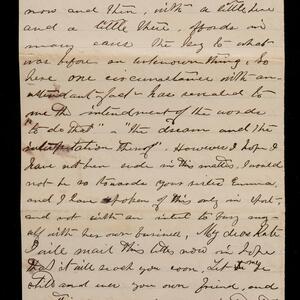 now and then, with a little here
and a little there, affords in
many cases the key to what
was before an unknown thing, so
here one circumstance with an
attendant fact has revealed to
me the intendment of the words
to do that" & "the dream and the
interpretation thereof" However I hope I
have not been rude in this matter. I would
not be so towards your sister Emma,
and I have spoken of this only in sport
and not with an intent to busy my-
self with her own business. My dear Kate
I will mail this letter now in hope
that it will reach you soon. Let
still and ever your own friend, and